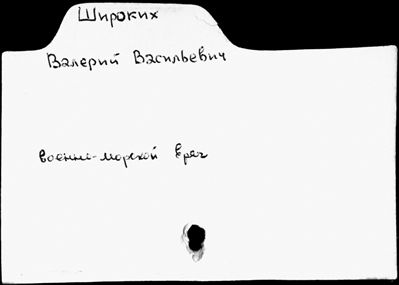 Широких
Валерий Васильевич
военно-морской врач